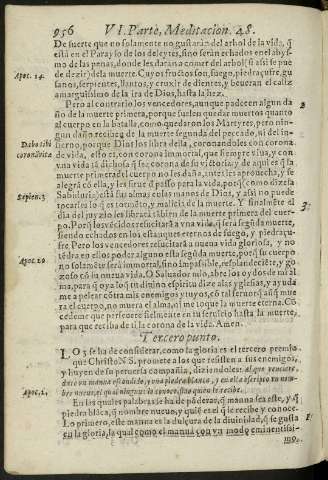 956 VI. Parte, Meditacion. 48.
De suerte que no solamente no gustarán del arbol de la vida, q̃
está en el Parayso de los deleytes, sino serán echados en el abys-
mo de las penas, donde les darán a comer del arbol (si assi se pue
de dezir) de la muerte. Cuyos frutos son, fuego, piedra çufre, gu
sanos, serpientes, llantos, y cruxir de dientes, y beueran el caliz
amarguissimo de la ira de Dios, hasta la hez.
Apoc. 14.
Pero al contrario los vencedores, aunque padecen algun da
ño de la muerte primera, porque suelen quedar muertos quanto
al cuerpo en la batalla, como quedaron los Martyres, pero nin-
gun daño reciben de la muerte segunda del pecado, ni del in-
fierno, porque Dios los libra della, coronandoles con corona
de vida, esto es, con corona inmortal, que siempre viua, y con
vna vida tã dichosa q̃ sea corona de su vitoria, y de aqui es q̃ la
muerte primera del cuerpo no les daña, antes les aprouecha, y se
alegrã cõ ella, y les sirue d̃ passo para la vida, porq̃ (como dize la
Sabiduria) està sus almas en las manos de Dios, y assi no puede
tocarles lo q̃ es tormẽto, y malicia de la muerte. Y finalmẽte el
dia del juyzio les librará tãbiẽ de la muerte primera del cuer-
po. Porq̃ los vẽcidos resucitarã a vna vida, q̃ será segũda muerte,
siendo echados en los estanques eternos de fuego, y piedraçu-
fre. Pero los vencedores resucitarã a nueua vida gloriosa, y no
tẽdrà en ellos poder alguno esta segũda muerte, porq̃ su cuerpo
no solamẽte será immortal, sino impassible, resplandeciẽte, y go
zoso cõ su misma vida. O Saluador mio, abre los oydos de mi al
ma, para q̃ oya lo q̃ tu diuino espiritu dize a las yglesias, y ayuda
me a pelear cõtra mis enemigos y tuyos, cõ tal feruor, q̃ aũq̃ mue
ra el cuerpo, no muera el alma, ni me toque la muerte eterna. Cõ
cedeme que perseuere fielmente en tu seruicio hasta la muerte,
para que reciba de ti la corona de la vida. Amen.
Debo tibi
coronã vitæ
Sapien. 3
Apoc. 20
Tercero punto.
LO 3. se ha de considerar, como la gloria es el tercero premio
que Christo N. S. promete a los que resisten a sus enemigos,
y huyen de su peruersa compañia, diziendoles: Al que venciere,
darè vn manna escondido, y vna piedra blanca, y en ella escripto vn nom-
bre nueuo, el qual ninguno lo conoce, sino quien le recibe.
Apoc. 2.
En las quales palabras se ha de põderar, q̃ manna sea este, y q̃
piedra blãca, q̃ nombre nueuo, y quiẽ es el q̃ le recibe y conoce.
Lo primero, este manna es la dulçura de la diuinidad, q̃ se gusta
en la gloria, la qual como el manna con vn modo eminentissi-
mo,